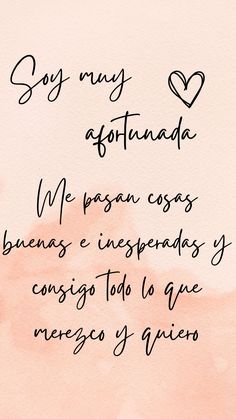 Soy muy
afortunada
Me pasan cosas
buenas e inesperadas y
consigo todo lo que
merezco y quiero